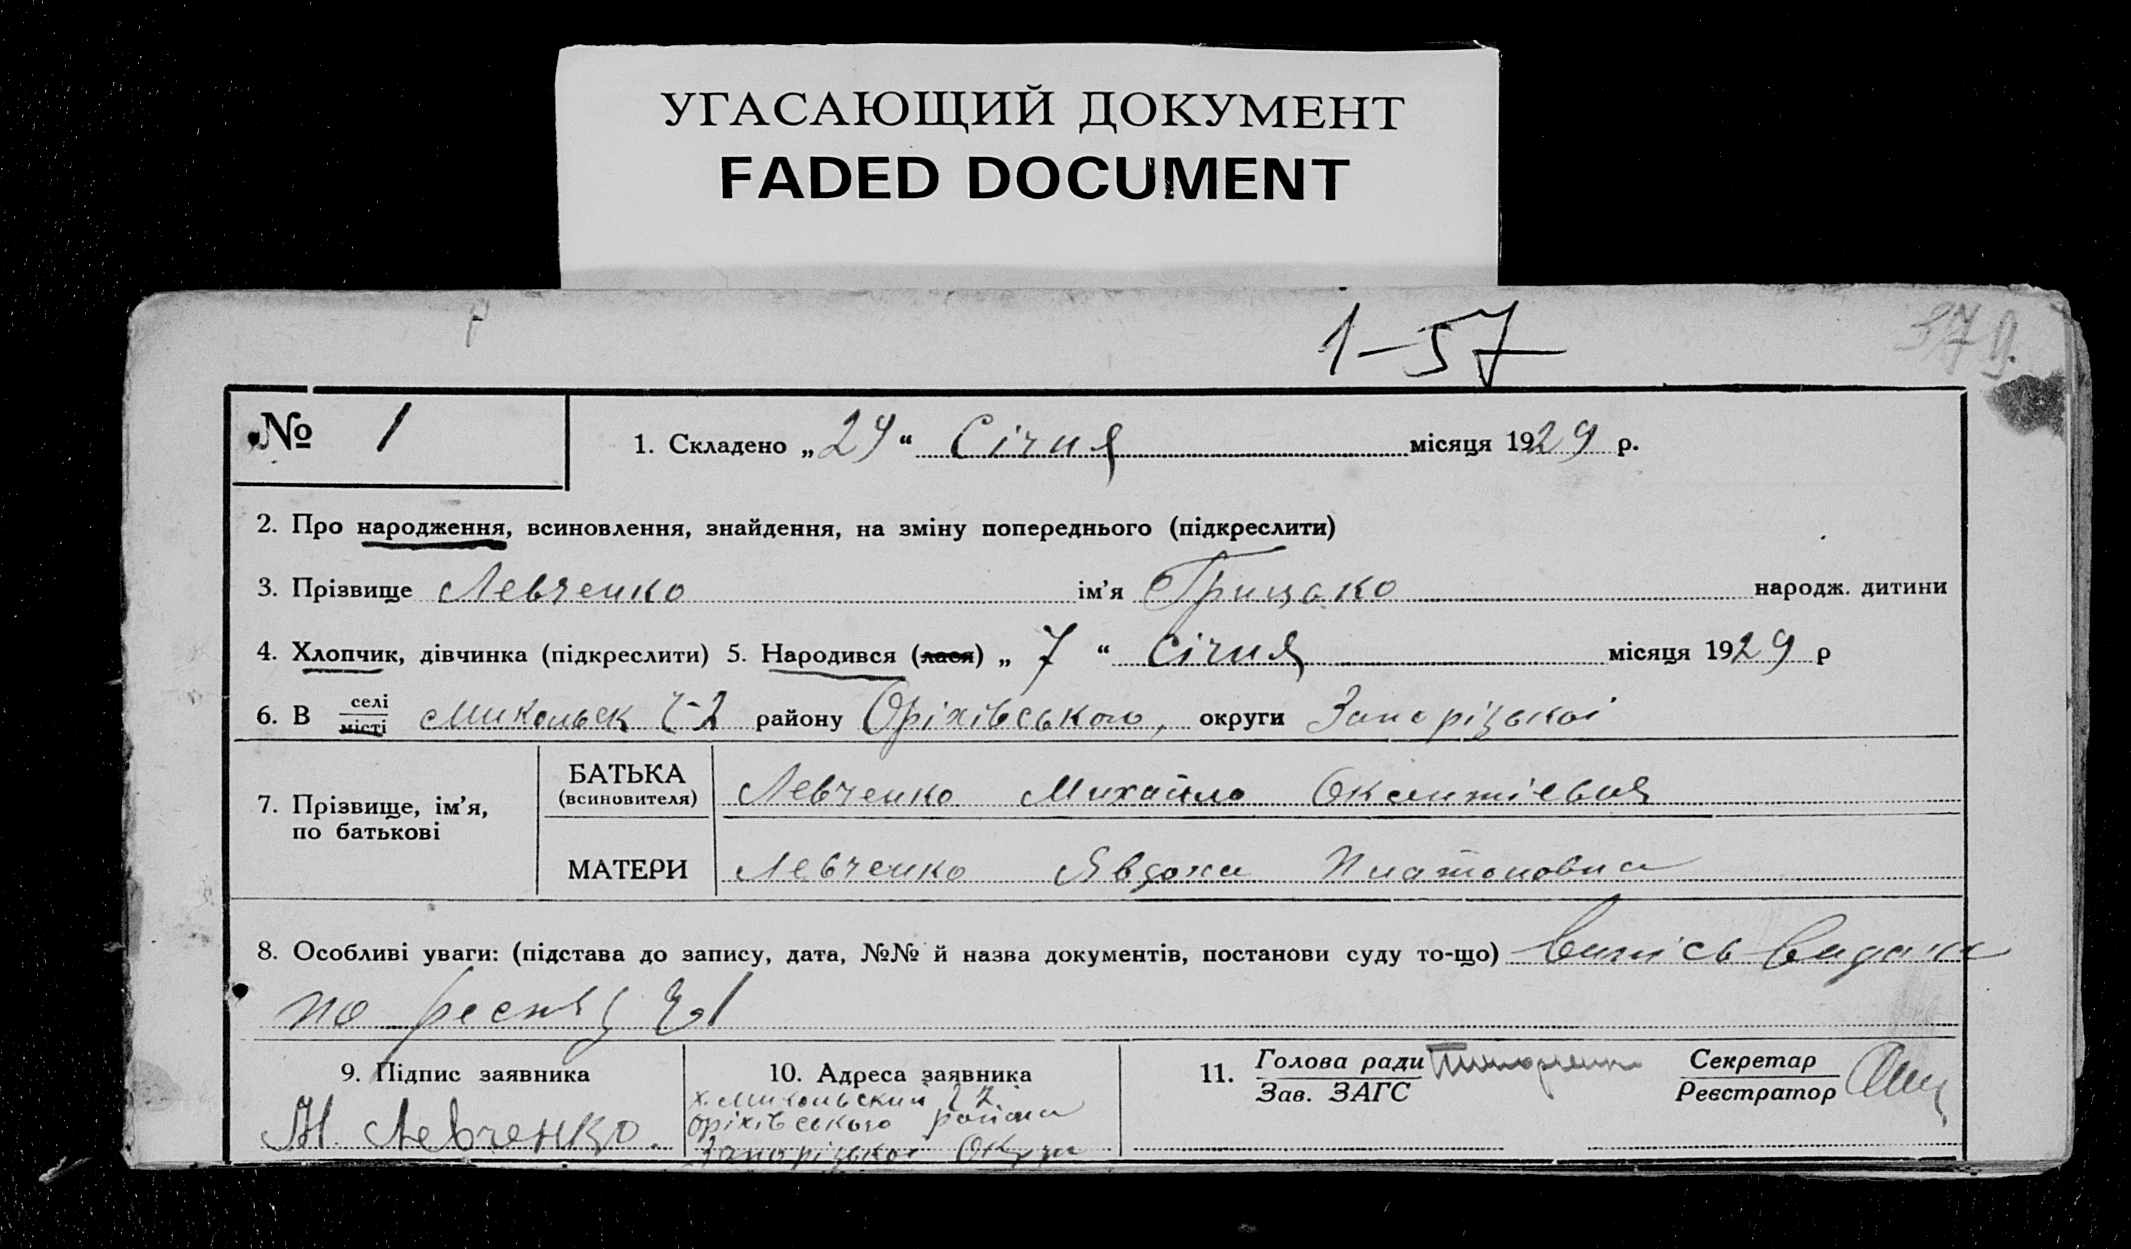 УГАСАЮЩИЙ ДОКУМЕНТ
FADED DOCUMENT
1-57
379.
№ 1
1. Складено „29“ Січня місяця 1929 р.
2. Про народження, всиновлення, знайдення, на зміну попереднього (підкреслити)
3. Прізвище Левченко ім'я Грицько народж. дитини
4. Хлопчик, дівчинка (підкреслити) 5. Народився (лася) „ 7 “ Січня місяця 1929 р
6. В селі місті Микольск 2 району Оріхівського, округи Запорізькоі
7. Прізвище, ім'я, по батькові
БАТЬКА (всиновителя) Левченко Михайло
МАТЕРИ Левченко Явдоха Платоновна
8. Особливі уваги: (підстава до запису, дата, №№ й назва документів, постанови суду то-що) Випісь видана
по 1
9. Підпис заявника
М Левченко.
10. Адреса заявника
х. Микольский
Оріхівського района
Запорізькоі Округи
11. Голова ради
Зав. ЗАГС
Секретар
Реєстратор